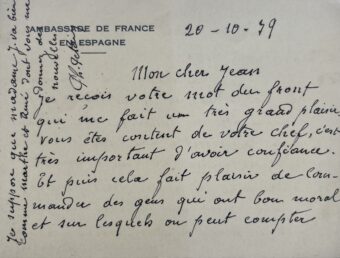 AMBASSADE DE FRANCE
EN ESPAGNE
20-10-39
Mon cher Jean
Je reçois votre mot du front
qui me fait un très grand plaisir,
vous êtes content de votre chef, c'est
très important d'avoir confiance.
Et puis cela fait plaisir de com-
mander des gens qui ont bon moral
et sur lesquels on peut compter
Je suppose que madame J. va bien
comme marthe et dont vous me
donnez des
nouvelles
Ph. Pétain